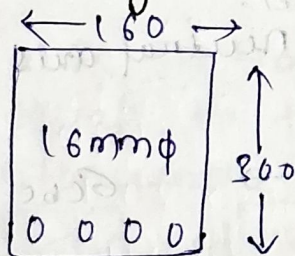 160
16mmϕ
300
0 0 0 0